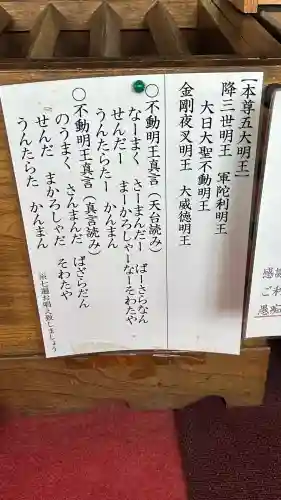 【本尊五大明王】
降三世明王　軍陀利明王
大日大聖不動明王
金剛夜叉明王　大威徳明王
〇不動明王真言（天台読み）
なーまく　さーまんだー　ばーさらなん
せんだー　まーかろしゃーなーそわたや
うんたらたー　かんまん
〇不動明王真言（真言読み）
のうまく　さんまんだ　ばざらだん
せんだ　まかろしゃだ　そわたや
うんたらた　かんまん
※七遍お唱え致しましょう
ご利